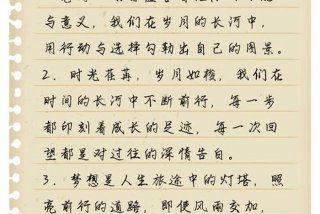 与意义，我们在岁月的长河中，
用行动与选择勾勒出自己的图景。
2、时光荏苒，岁月如梭，我们在
时间的长河中不断前行，每一步
都印刻着成长的足迹，每一次回
望都是对过往的深情告白。
3、梦想是人生旅途中的灯塔，照
亮前行的道路，即使风雨交加，